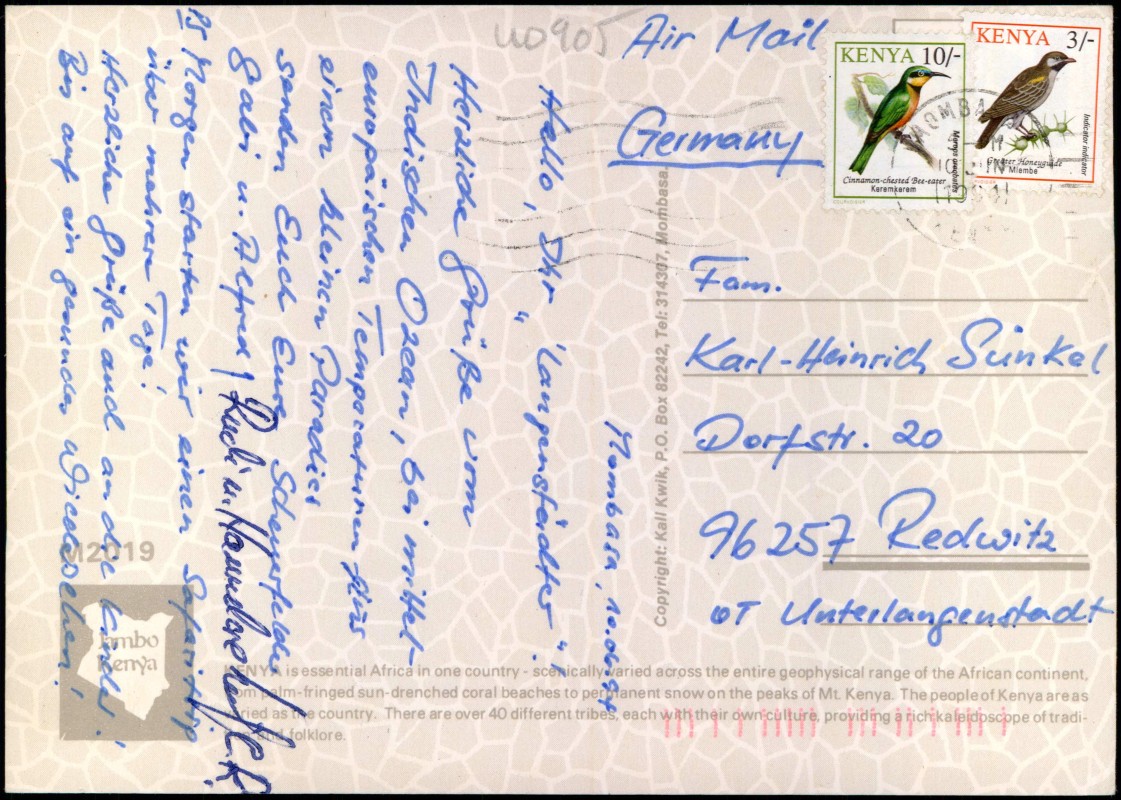 UO905
Air Mail
Germany
KENYA 10/-
Cinnamon-chested Bee-eater
Keremkerem
KENYA 3/-
Indicator indicator
Greater Honeyguide
Mlembe
MOMBASA
Fam.
Karl-Heinrich Sünkel
Dorfstr. 20
96257 Redwitz
OT Unterlangenstadt
Copyright: Kall Kwik, P.O. Box 82242, Tel: 314307, Mombasa.
Mombasa,
Hallo, Ihr "Langenstädter",
Herzliche Grüße vom
Indischen Ozean, bei mittel-
europäischen Temperaturen aus
einem kleinen Paradies
senden Euch Eure Scheuerfelder
Gabi u. Alfred, Rudi u. Hannelore
PS Morgen starten wir einen Safaritrip
über mehrere Tage!
Herzliche Grüße auch an die Kinder!
Bis auf ein gesundes Wiedersehen!
M2019
Jambo
Kenya
KENYA is essential Africa in one country - scenically varied across the entire geophysical range of the African continent,
from palm-fringed sun-drenched coral beaches to permanent snow on the peaks of Mt. Kenya. The people of Kenya are as
varied as the country. There are over 40 different tribes, each with their own culture, providing a rich kaleidoscope of tradi-
tion and folklore.